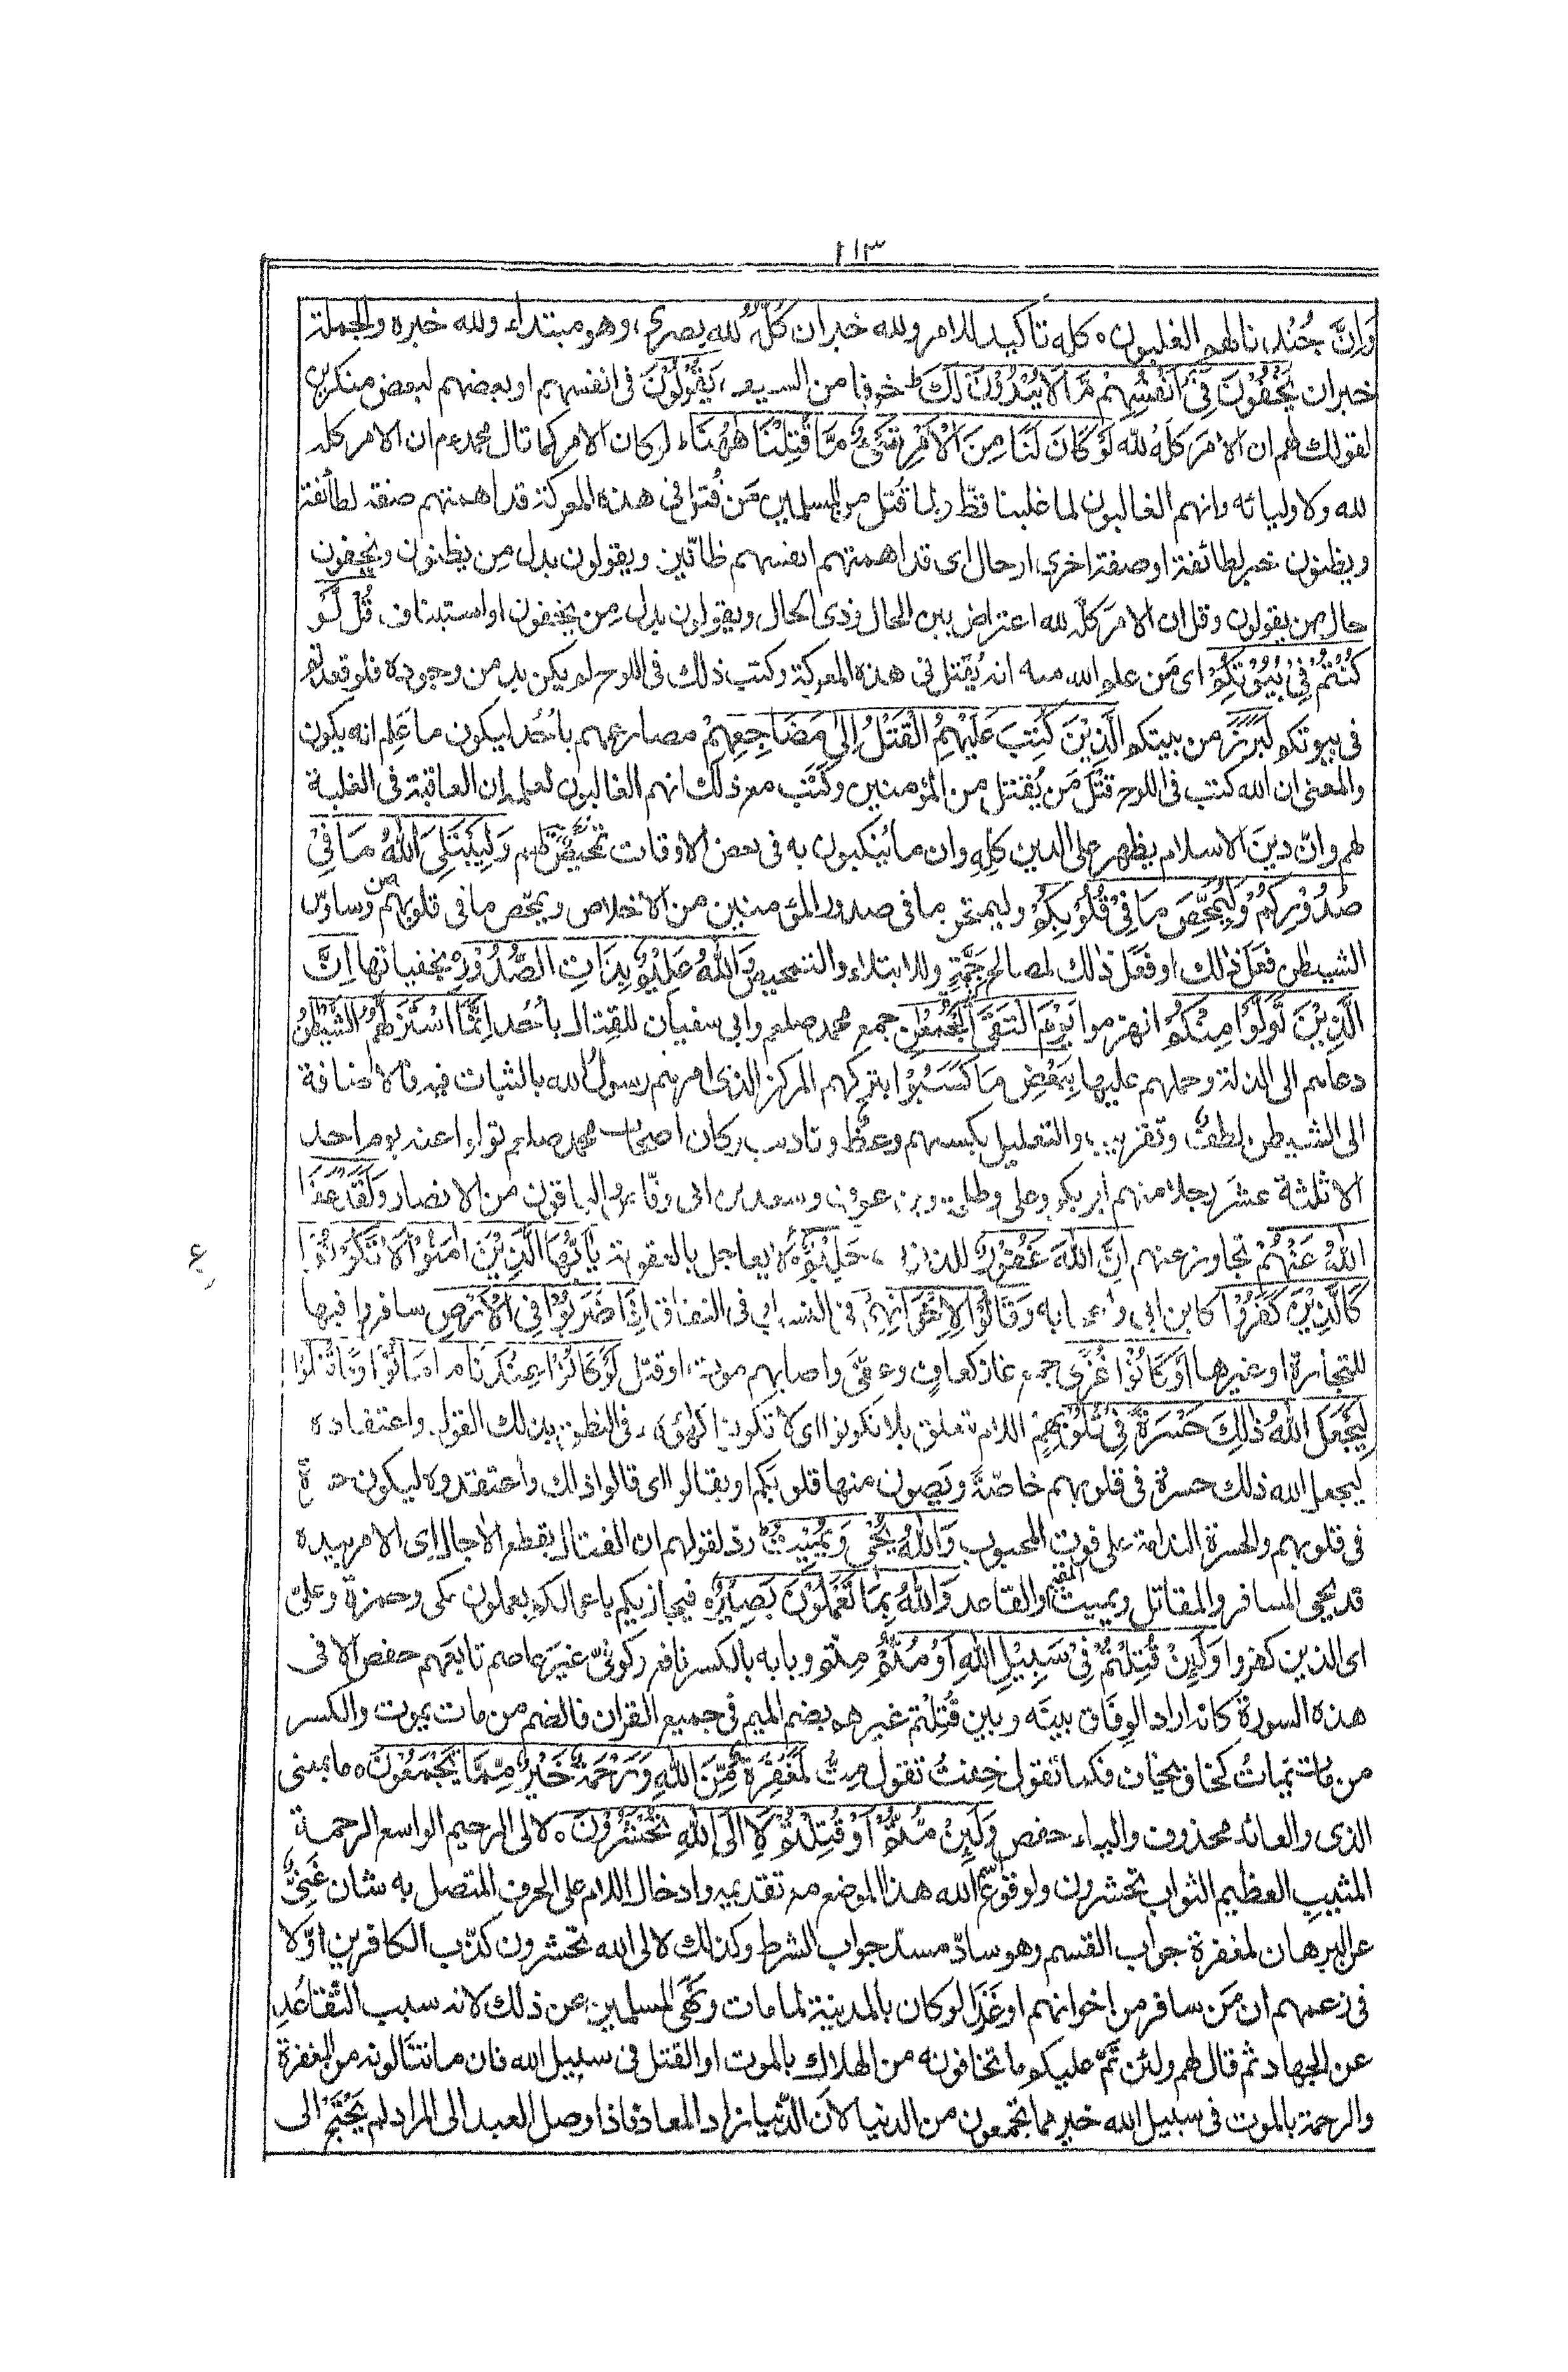 ١١٣
وَاِنَّ جُنْدَنَا لهم الغلبون ٥ كله تاكيد للامر ولله خبر ان كُلُّهٗ لله بصرى، وهو مبتداء ولله خبره والجملة
خبر ان يُخْفُوْنَ فِىْٓ اَنْفُسِهِمْ مَّا لَا يُبْدُوْنَ لَكَ ط خوفا من السيف، يَقُوْلُوْنَ فى انفسهم او بعضهم لبعض منكرين
لقولك لهم ان الامرَ كلهُ لله لَوْ كَانَ لَنَا مِنَ الْاَمْرِ شَىْءٌ مَّا قُتِلْنَا هٰهُنَا ط لو كان الامر كما قال محمد ع م ان الامر كله
لله ولاوليائه وانهم الغالبون لما غلبنا قطّ ولما قُتل من المسلمين مَن قُتل فى هذه المعركة قد اهمتهم صفة لطائفة
ويظنون خبر لطائفة او صفة اخرى، او حال اى قد اهمتهم انفسهم ظانّين ويقولون بدل مِن يظنون ويخفون
حال من يقولون وقل ان الامر كلّه لله اعتراض بين الحال وذى الحال، ويقولون بدل مِن يخفون او استيناف، قُلْ لَّوْ
كُنْتُمْ فِىْ بُيُوْتِكُمْ اى مَن علم الله منه انه يُقتل فى هذه المعركة وكتب ذلك فى اللوح لم يكن بد من وجوده فلو قعدتم
فى بيوتكم لَبَرَزَ من بينكم الَّذِيْنَ كُتِبَ عَلَيْهِمُ الْقَتْلُ اِلٰى مَضَاجِعِهِمْ مصارعهم باُحُد ليكون ما عَلِم انه يكون
والمعنى ان الله كتب فى اللوح قتْلَ مَن يُقتل من المؤمنين وكَتَب مع ذلك انهم الغالبون لعلمه ان العاقبة فى الغلبة
لهم وانّ دينَ الاسلام يظهر على الدين كلِهِ وان ما يُنكبون به فى بعض الاوقات تمحيصٌ لهم وَلِيَبْتَلِىَ اللهُ مَا فِىْ
صُدُوْرِكُمْ وَلِيُمَحِّصَ مَا فِىْ قُلُوْبِكُمْ وليمتحن ما فى صدور المؤمنين من الاخلاص ويمحّص ما فى قلوبهم من وساوس
الشيطن فعَلَ ذلك، او فَعَل ذلك لمصالح جَمَّةٍ وللابتلاء والتمحيص وَاللهُ عَلِيْمٌۢ بِذَاتِ الصُّدُوْرِ ٥ بخفياتها اِنَّ
الَّذِيْنَ تَوَلَّوْا مِنْكُمْ انهزموا يَوْمَ الْتَقَى الْجَمْعٰنِ جمع محمد صلعم وابى سفيان للقتال باُحُد اِنَّمَا اسْتَزَلَّهُمُ الشَّيْطٰنُ
دعاهم الى الذلة وحملهم عليها بِبَعْضِ مَا كَسَبُوْا بتركهم المركز الذى امرهم رسول الله بالثبات فيه فالاضافة
الى الشيطن لطفٌ وتقريب، والتعليل بكسبهم وعظٌ وتاديب وكان اصحاب محمد صلعم تولوا عنه يوم احد
الا ثلثة عشَرَ رجلا منهم ابو بكر وعلى وطلحة وبن عوف وسعد بن ابى وقاص والباقون من الانصار وَلَقَدْ عَفَا
اللهُ عَنْهُمْ تجاوز عنهم اِنَّ اللهَ غَفُوْرٌ للذنوب، حَلِيْمٌ ٥ لا يعاجل بالعقوبة يٰٓاَيُّهَا الَّذِيْنَ اٰمَنُوْا لَا تَكُوْنُوْا
كَالَّذِيْنَ كَفَرُوْا كابن ابى واصحابه وَقَالُوْا لِاِخْوَانِهِمْ فى النسب او فى النفاق اِذَا ضَرَبُوْا فِى الْاَرْضِ سافروا فيها
للتجارة او غيرها اَوْ كَانُوْا غُزًّى جمع غاز كعافٍ وعفّى واصابهم موت، او قتل لَوْ كَانُوْا عِنْدَنَا مَا مَاتُوْا وَمَا قُتِلُوْا
لِيَجْعَلَ اللهُ ذٰلِكَ حَسْرَةً فِىْ قُلُوْبِهِمْ اللام تتعلق بلا تكونوا اى لا تكونوا كهؤلاء فى النطق بذلك القول واعتقاده
ليجعل الله ذلك حسرة فى قلوبهم خاصّةً ويصون منها قلوبكم او بقالوا اى قالوا ذلك واعتقدوه ليكون حسرة
فى قلوبهم والحسرة الندامة على فوت المحبوب وَاللهُ يُحْىٖ وَيُمِيْتُ ط ردّ لقولهم ان القتال يقطع الاجال اى الامر بيده
قد يحيى المسافر والمقاتل ويميت المقيم والقاعد وَاللهُ بِمَا تَعْمَلُوْنَ بَصِيْرٌ ٥ فيجازيكم باعمالكم يعملون مكى وحمزة وعلىّ
اى الذين كفروا وَلَئِنْ قُتِلْتُمْ فِىْ سَبِيْلِ اللهِ اَوْ مُتُّمْ مِتُّم وبابه بالكسر نافع وكوفىّ غيرَ عاصم تابعهم حفص الا فى
هذه السورة كانه اراد الوِفَاق بينَه وبين قُتِلْتم غيرهم بضم الميم فى جميع القران فالضم من مات يموت والكسر
من مات يَمَاتُ كخاف يخاف فكما تقول خِفتُ تقول مِتُّ لَمَغْفِرَةٌ مِّنَ اللهِ وَرَحْمَةٌ خَيْرٌ مِّمَّا يَجْمَعُوْنَ ٥ ما بمعنى
الذى والعائد محذوف والياء حفص وَلَئِنْ مُّتُّمْ اَوْ قُتِلْتُمْ لَاِ الَى اللهِ تُحْشَرُوْنَ ٥ لالى الرحيم الواسع الرحمة
المثيبِ العظيم الثواب تحشرون ولوقوع اسم الله هذا الموضع مع تقديمه وادخال اللام على الحرف المتصل به شان غَنِىٌّ
عن البرهان لمغفرة جواب القسم وهو سادّ مسدّ جواب الشرط وكذلك لالى الله تحشرون كذّب الكافرين اوّلا
فى زعمهم ان مَن سافر من اخوانهم او غَزَا لو كان بالمدينة لما مات ونَهَى المسلمين عن ذلك لانه سبب التقَاعُدِ
عن الجهاد ثم قال لهم ولئن تَمَّ عليكم ما تخافونه من الهلاك بالموت او القتل فى سبيل الله فان ما تنالونه من المغفرة
والرحمة بالموت فى سبيل الله خير مما تجمعون من الدنيا لانّ الدّنيا زاد المعاد فاذا وصل العبد الى المراد لم يَحْتَجْ الى
ع